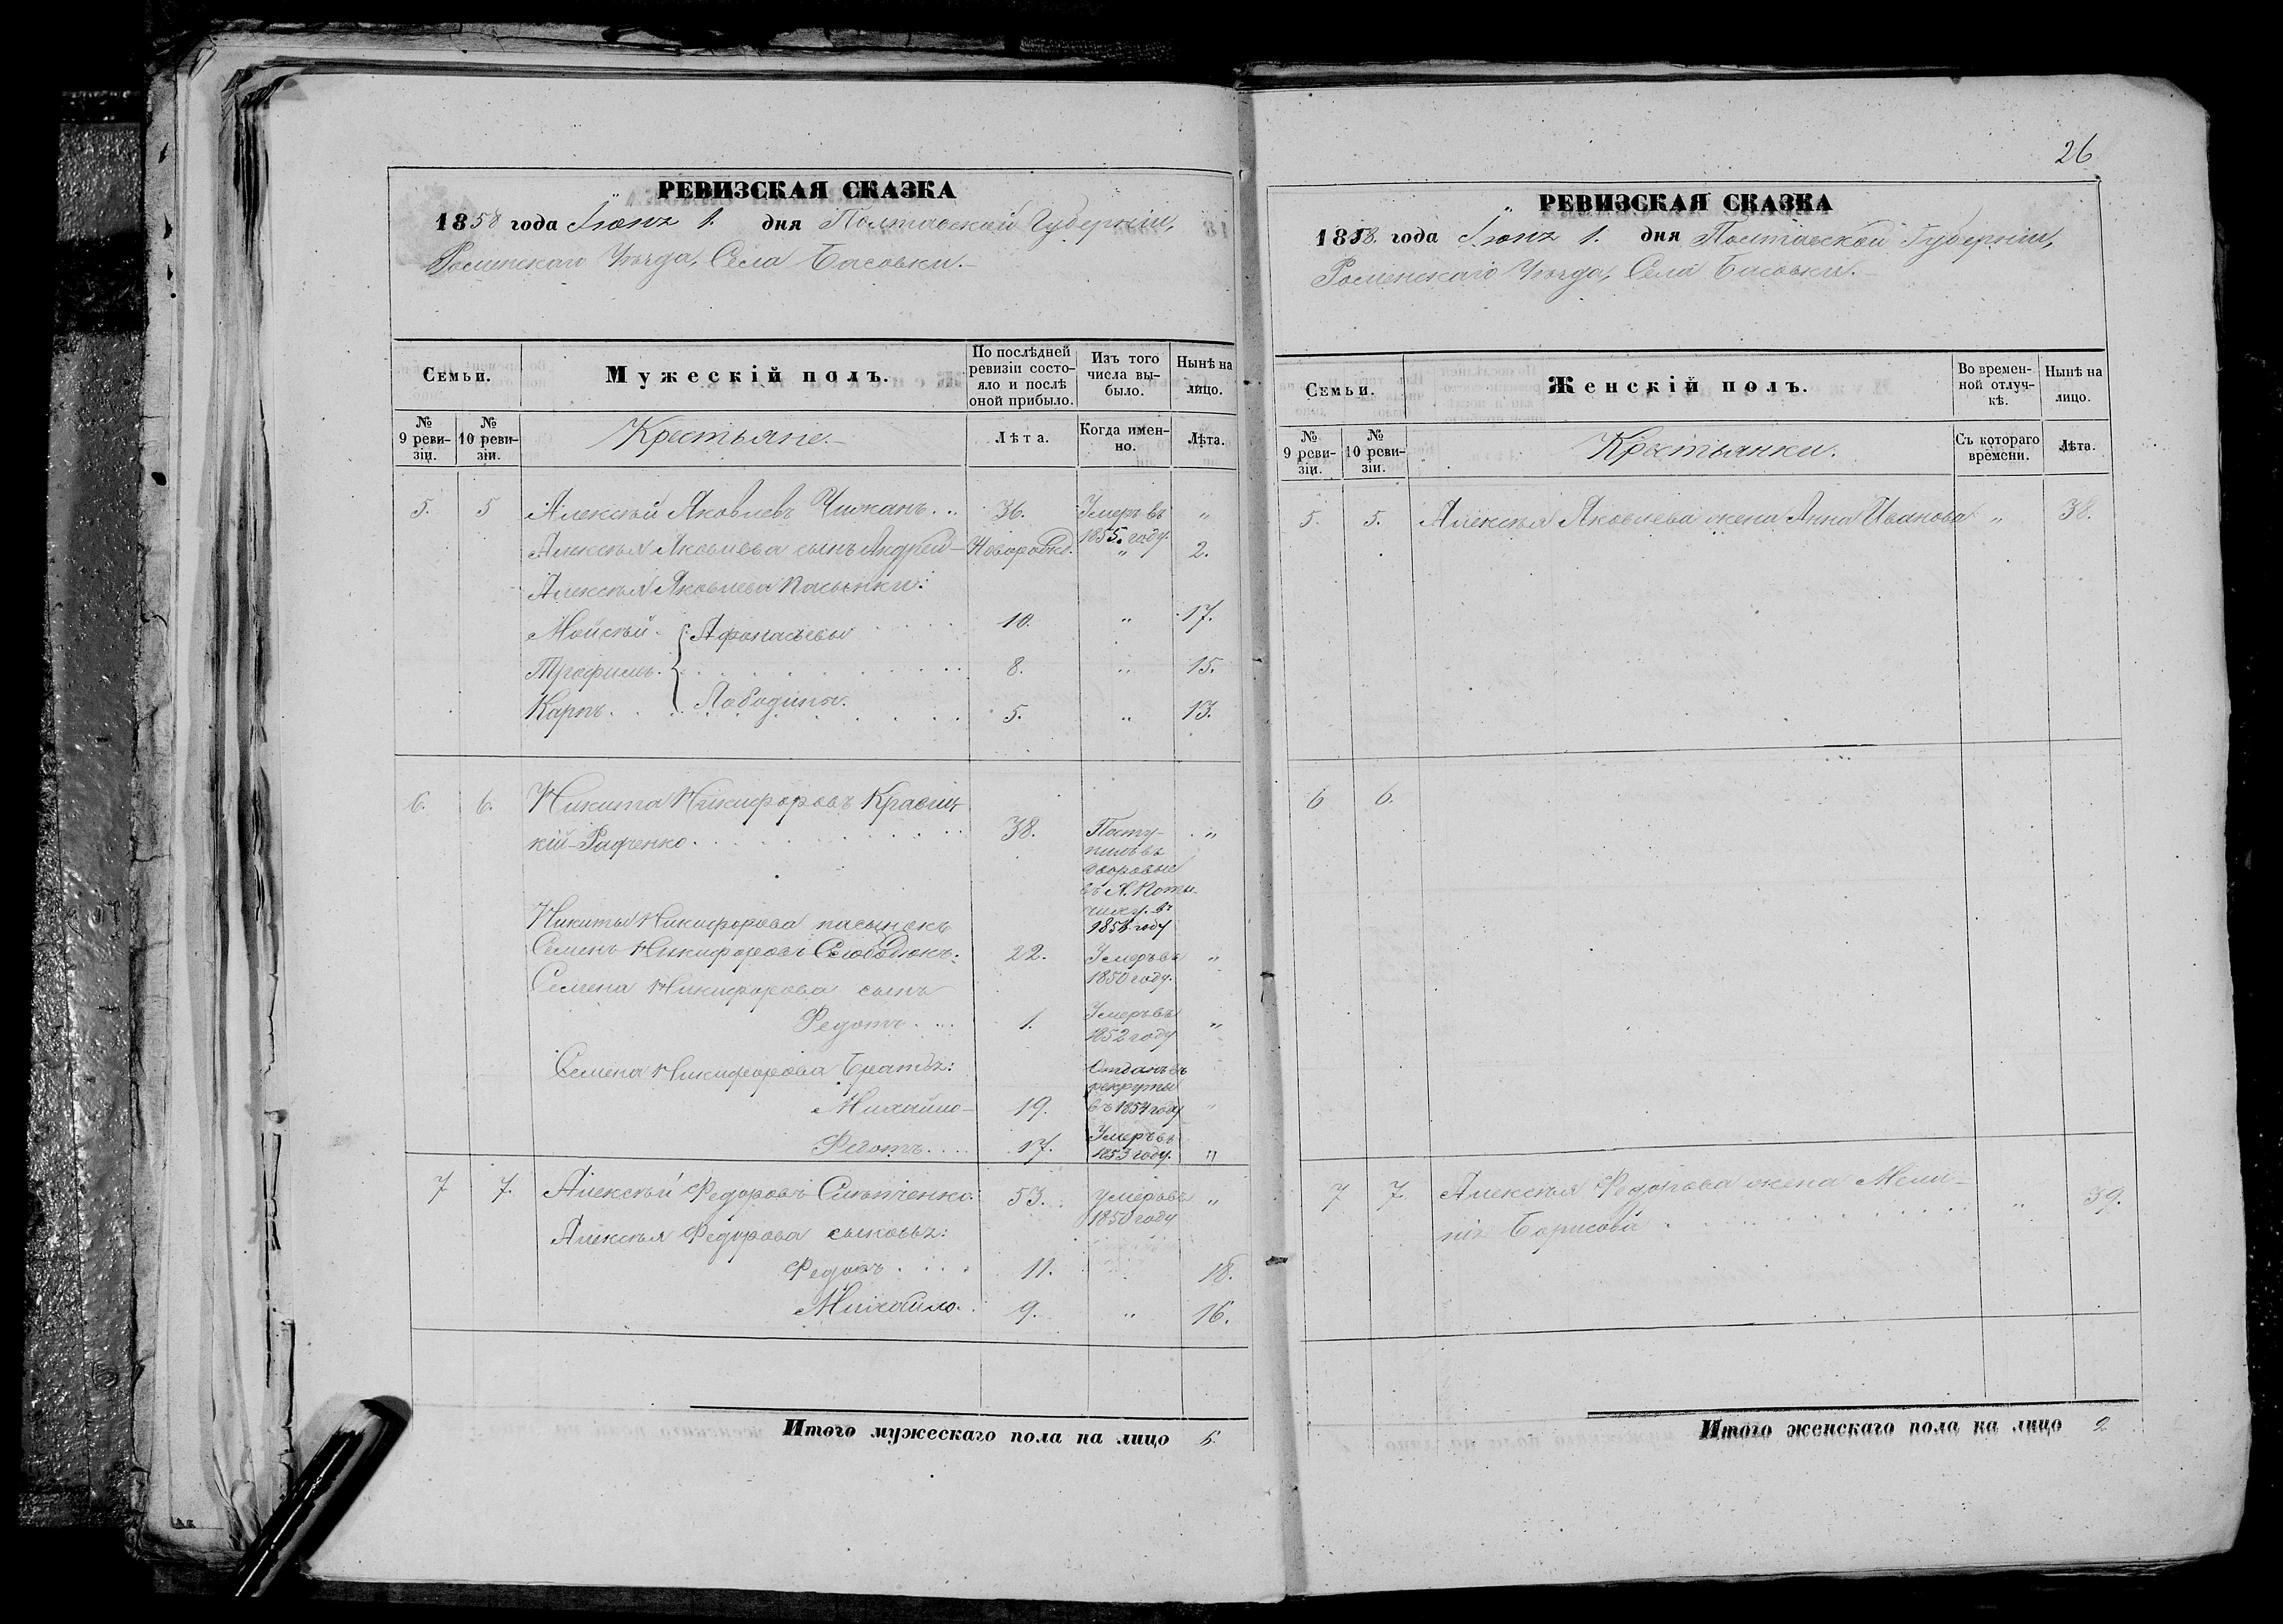 РЕВИЗСКАЯ СКАЗКА
1858 года Іюнъ 1. дня Полтавской Губерніи,
Роменскаго Уѣзда, Села Басовки.
Семьи.
Мужескій полъ.
По послѣдней ревизіи состояло и послѣ оной прибыло.
Изъ того числа выбыло.
Нынѣ на лицо.
№ 9 ревизіи.
№ 10 ревизіи.
Крестьяне.
Лѣта.
Когда именно.
Лѣта.
5. 5 Алексѣй Яковлевъ Чижанъ... 36. Умеръ въ 1855. году. "
Алексѣя Яковлева сынъ Андрей - Новорожд. " 2.
Алексѣя Яковлева пасынки:
Мойсѣй. Афонасьевы 10. " 17.
Трофимъ. 8. " 15.
Карпъ. Лободины. 5. " 13.
6. 6. Никита Никифоровъ Красиц
кій-Радченко. 38. Поступилъ въ дворовые въ 185 году "
Никиты Никифорова пасынокъ
Семенъ Никифоровъ 22. Умеръ въ 1850 году. "
Семена Никифорова сынъ
Федотъ.... 1. Умеръ въ 1852 году "
Семена Никифорова братья:
Михайло- 19. Отданъ въ рекруты въ 1854 году "
Федотъ.... 17. Умеръ въ 1853 году. "
7 7. Алексѣй Федоровъ Слѣпченко. 53. Умеръ въ 1850 году "
Алексѣя Федорова сыновья:
Федоръ.... 11. 18.
Михайло.. 9. " 16.
Итого мужескаго пола на лицо 6.
26
РЕВИЗСКАЯ СКАЗКА
1858. года Іюнъ 1. дня Полтавской Губерніи,
Роменскаго Уѣзда, Села Басовки.
Семьи.
Женскій полъ.
Во временной отлучкѣ.
Нынѣ на лицо.
№ 9 ревизіи.
№ 10 ревизіи.
Крестьянки.
Съ котораго времени.
Лѣта.
5. 5. Алексѣя Яковлева жена Анна Иванова " 38.
6 6.
7 7. Алексѣя Федорова жена Мела-
нія Борисова " 39.
Итого женскаго пола на лицо 2